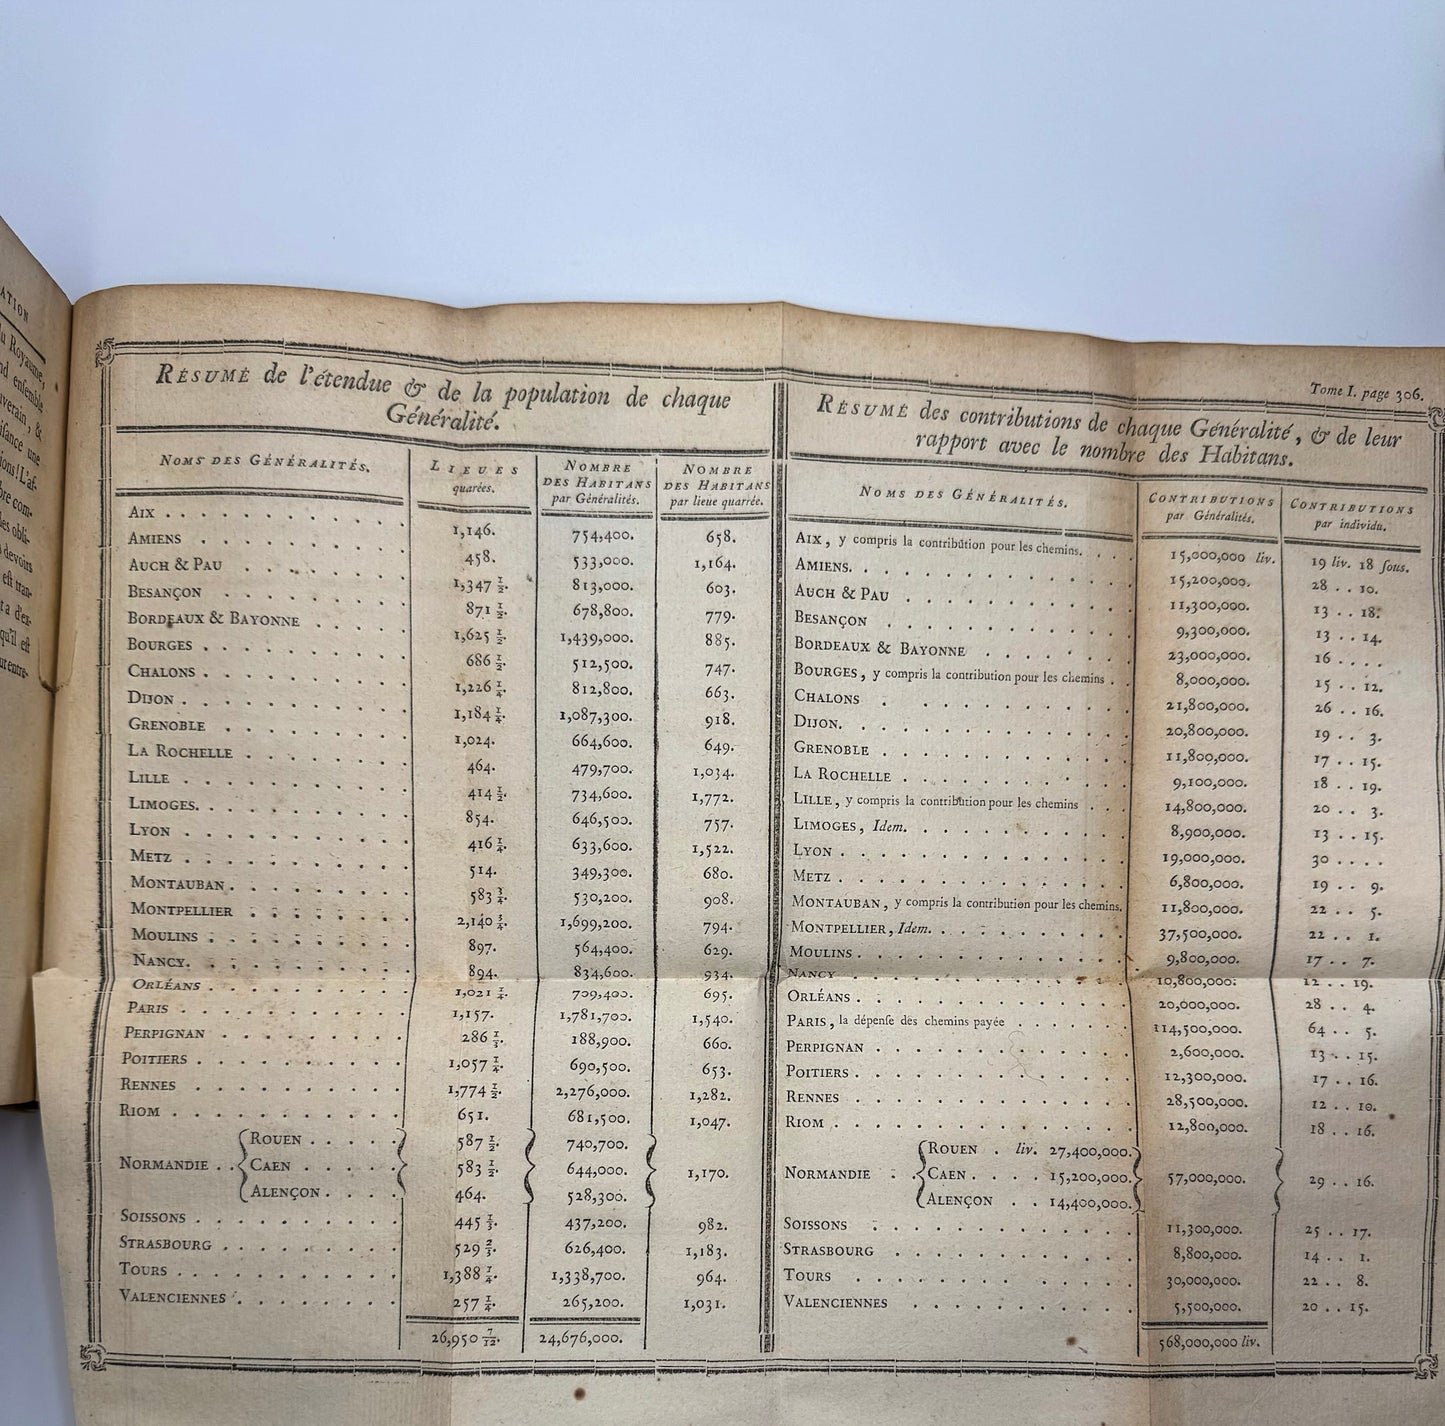 ATION
du Royaume,
nd enſemble
verain, &
iſance une
ions! L'af-
bre com-
les obli-
devoirs
eſt tran-
t a d'ex-
qu'il eſt
ur entre-
Tome I. page 306.
RÉSUMÉ de l'étendue & de la population de chaque
Généralité.
NOMS DES GÉNÉRALITÉS. LIEUES quarées. NOMBRE DES HABITANS par Généralités. NOMBRE DES HABITANS par lieue quarrée.
AIX . . . 1,146. 754,400. 658.
AMIENS . . . 458. 533,000. 1,164.
AUCH & PAU . . . 1,347 1/2. 813,000. 603.
BESANÇON . . . 871 1/2. 678,800. 779.
BORDEAUX & BAYONNE . . . 1,625 1/2. 1,439,000. 885.
BOURGES . . . 686 1/2. 512,500. 747.
CHALONS . . . 1,226 1/4. 812,800. 663.
DIJON . . . 1,184 1/4. 1,087,300. 918.
GRENOBLE . . . 1,024. 664,600. 649.
LA ROCHELLE . . . 464. 479,700. 1,034.
LILLE . . . 414 1/2. 734,600. 1,772.
LIMOGES. . . . 854. 646,500. 757.
LYON . . . 416 1/4. 633,600. 1,522.
METZ . . . 514. 349,300. 680.
MONTAUBAN . . . 583 3/4. 530,200. 908.
MONTPELLIER . . . 2,140 3/4. 1,699,200. 794.
MOULINS . . . 897. 564,400. 629.
NANCY. . . . 894. 834,600. 934.
ORLÉANS . . . 1,021 1/4. 709,400. 695.
PARIS . . . 1,157. 1,781,700. 1,540.
PERPIGNAN . . . 286 1/3. 188,900. 660.
POITIERS . . . 1,057 1/4. 690,500. 653.
RENNES . . . 1,774 1/2. 2,276,000. 1,282.
RIOM . . . 651. 681,500. 1,047.
ROUEN . . . 587 1/2. 740,700.
NORMANDIE . . CAEN . . . 583 1/2. 644,000. 1,170.
ALENÇON . . . 464. 528,300.
SOISSONS . . . 445 1/3. 437,200. 982.
STRASBOURG . . . 529 2/3. 626,400. 1,183.
TOURS . . . 1,388 1/4. 1,338,700. 964.
VALENCIENNES . . . 257 1/4. 265,200. 1,031.
26,950 7/12. 24,676,000.
RÉSUMÉ des contributions de chaque Généralité, & de leur
rapport avec le nombre des Habitans.
NOMS DES GÉNÉRALITÉS. CONTRIBUTIONS par Généralités. CONTRIBUTIONS par individu.
AIX, y compris la contribution pour les chemins. . . . 15,000,000 liv. 19 liv. 18 ſous.
AMIENS. . . . 15,200,000. 28 . . 10.
AUCH & PAU . . . 11,300,000. 13 . . 18.
BESANÇON . . . 9,300,000. 13 . . 14.
BORDEAUX & BAYONNE . . . 23,000,000. 16 . . . .
BOURGES, y compris la contribution pour les chemins . . 8,000,000. 15 . . 12.
CHALONS . . . 21,800,000. 26 . . 16.
DIJON. . . . 20,800,000. 19 . . 3.
GRENOBLE . . . 11,800,000. 17 . . 15.
LA ROCHELLE . . . 9,100,000. 18 . . 19.
LILLE, y compris la contribution pour les chemins . . . 14,800,000. 20 . . 3.
LIMOGES, Idem. . . . 8,900,000. 13 . . 15.
LYON . . . 19,000,000. 30 . . . .
METZ . . . 6,800,000. 19 . . 9.
MONTAUBAN, y compris la contribution pour les chemins. 11,800,000. 22 . . 5.
MONTPELLIER, Idem. . . . 37,500,000. 22 . . 1.
MOULINS . . . 9,800,000. 17 . . 7.
NANCY . . . 10,800,000. 12 . . 19.
ORLÉANS . . . 20,000,000. 28 . . 4.
PARIS, la dépenſe des chemins payée . . . 114,500,000. 64 . . 5.
PERPIGNAN . . . 2,600,000. 13 . . 15.
POITIERS . . . 12,300,000. 17 . . 16.
RENNES . . . 28,500,000. 12 . . 10.
RIOM . . . 12,800,000. 18 . . 16.
ROUEN . liv. 27,400,000.
NORMANDIE . . CAEN . . . 15,200,000. 57,000,000. 29 . . 16.
ALENÇON . . 14,400,000.
SOISSONS . . . 11,300,000. 25 . . 17.
STRASBOURG . . . 8,800,000. 14 . . 1.
TOURS . . . 30,000,000. 22 . . 8.
VALENCIENNES . . . 5,500,000. 20 . . 15.
568,000,000 liv.